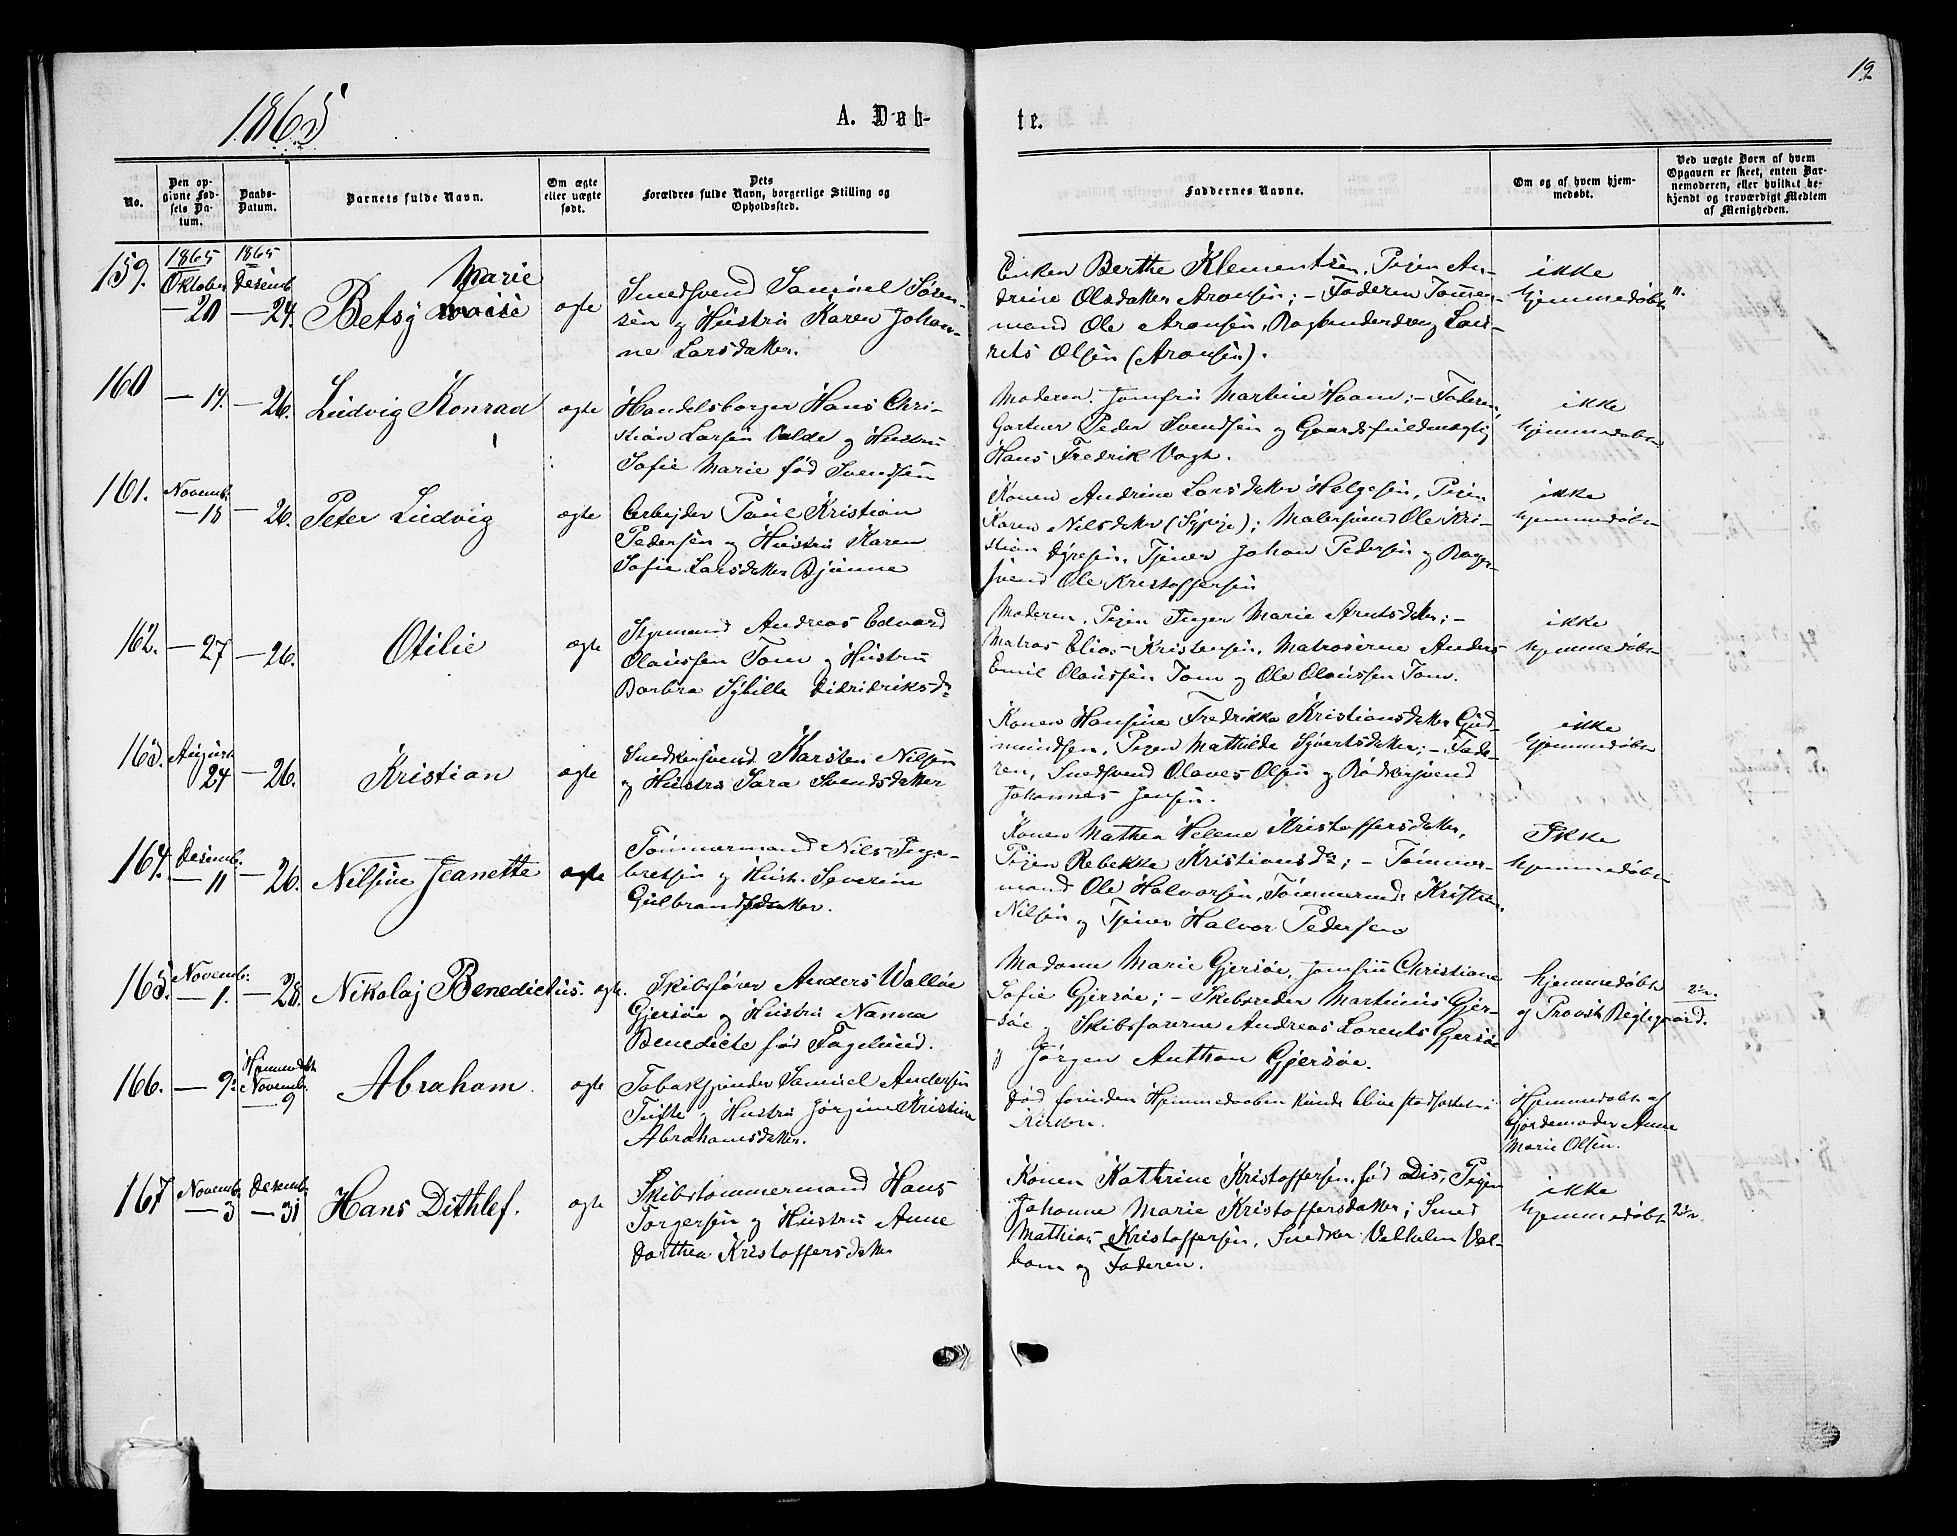 19
1865
A. Døb-
te.
No.
Den op-
givne Fød-
sels Da-
tum.
Daabs-
Datum.
Barnets fulde Navn.
Om ægte
eller uægte
født.
Dets
Forældres fulde Navn, borgerlige Stilling og
Opholdssted.
Faddernes Navne.
Om og af hvem hjem-
medøbt.
Ved uægte Børn af hvem
Opgaven er skeet, enten Bar-
nemoderen, eller hvilket be-
kjendt og troværdigt Medlem
af Menigheden.
159.
1865
Oktober
— 20
1865
Desemb.
— 24.
Marie
Betsy
ægte
Smedsvend Samuel Søren-
sen og Hustru Karen Johan-
ne Larsdatter.
Enken Berthe Klementsen, Pigen An-
drine Olsdatter Aronsen; – Faderen Tømmer-
mand Ole Aronsen, Lau-
rits Olsen (Aronsen).
ikke
hjemmedøbt
160
— 14.
— 26.
Ludvig Konrad
ægte
Handelsborger Hans Chri-
stian Larsen Valde og Hustru
Sofie Marie fød Svendsen
Moderen, Jomfru Martine Haam; – Faderen,
Gartner Peder Svendsen og Gaardsfuldmægtig
Hans Fredrik Vogt.
ikke
hjemmedøbt
161.
Novemb.
— 18
— 26.
Peter Ludvig
ægte
Arbejder Paul Kristian
Pedersen og Hustru Karen
Sofie Larsdatter Bjønne
Konen Andrine Larsdatter Helgesen, Pigen
Karen Nilsdatter (Sypige); Malersvend Ole Kri-
stian Dyresen, Tjener Johan Pedersen og Bager-
svend Ole Kristoffersen
ikke
hjemmedøbt
162.
— 27
— 26.
Otilie
ægte
Styrmand Andreas Edvard
Olaussen Tom og Hustru
Barbra Sybille Didridriksdr
Moderen, Pigen Inger Marie Arntsdatter; –
Matros Elias Kristensen, Matroserne Anders
Emil Olaussen Tom og Ole Olaussen Tom.
ikke
hjemmedøbt
163.
August
24
— 26.
Kristian
ægte
Snedkersvend Karsten Nilsen
og Hustru Sara Svendsdatter
Konen Hansine Fredrikke Kristiansdatter Gud-
mundsen, Pigen Mathilde Syvertsdatter; – Fade-
ren, Smedsvend Olaves Olsen og Bødkersvend
Johannes Jensen.
ikke
hjemmedøbt
164.
Desemb.
— 11
— 26.
Nilsine Jeanette
ægte
Tømmermand Nils Inge-
bretsen og Hust. Severine
Gulbrandsdatter.
Konen Mathea Helene Kristoffersdatter,
Pigen Rebekke Kristiansdr; – Tømmer-
mand Ole Halvorsen, Tømmermd. Kristian
Nilsen og Tjener Halvor Pedersen
Ikke
hjemmedøbt
165.
Novemb.
— 1.
— 28.
Nikolaj Benedictus.
ægte.
Skibsfører Anders Walløe
Gjersøe og Hustru Nanna
Benedicte fød Fagelund.
Madame Marie Gjersøe, Jomfru Christiane
Sofie Gjersøe; – Skibsreder Martinius Gjer-
søe og Skibsførerne Andreas Lorents Gjersøe
og Jørgen Anthon Gjersøe.
hjemmedøbt
af Provst Registgaard.
166.
— 9.
Hjemmedøbt
Novemb.
— 9
Abraham
ægte
Tobakspinder Samuel Andersen
Tufte og Hustru Jørgine Kristine
Abrahamsdatter.
Død forinden Hjemmedaaben kunde blive stadfæstet i
Kirken.
Hjemmedøbt af
Gjordemoder Anne
Marie Olsen.
167
Novemb.
— 3
Desemb.
— 31
Hans Dithlef.
ægte
Skibstømmermand Hans
Torgersen og Hustru Anne
Dorthea Kristoffersdatter
Konen Kathrine Kristoffersen, fød Dis, Pigen
Johanne Marie Kristoffersdatter; Smed
Mathias Kristoffersen, Snedker Velhelm Val-
bom og Faderen.
ikke
hjemmedøbt